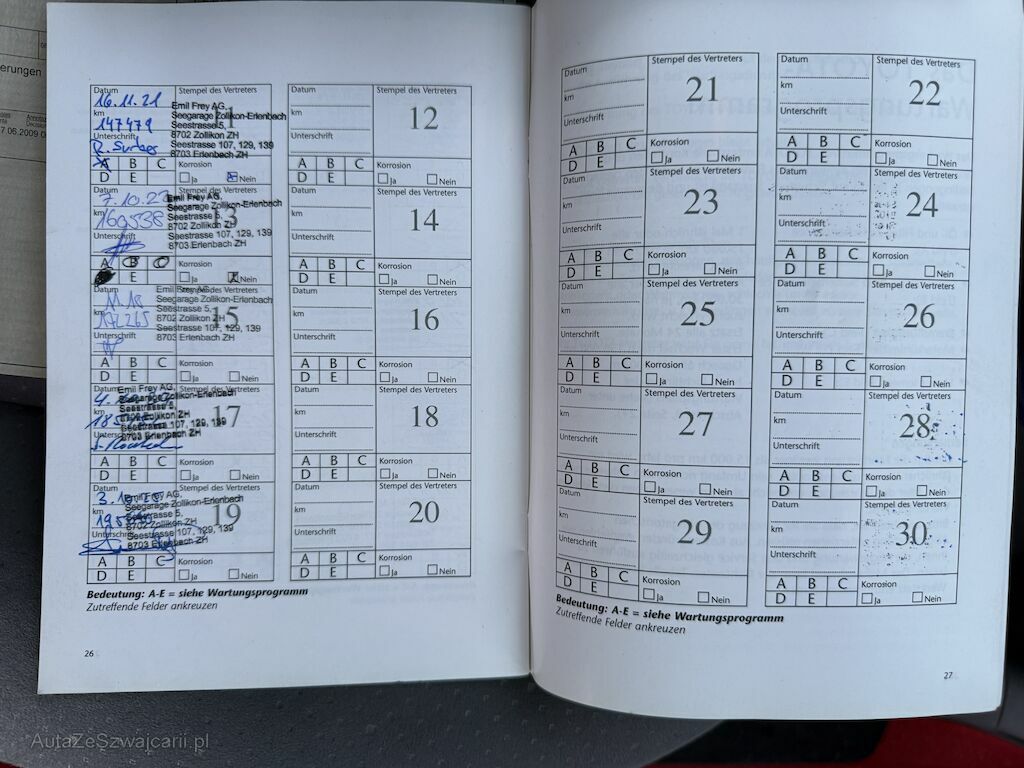 erungen
17.06.2009
Datum Stempel des Vertreters
16.11.21 Emil Frey AG,
Seegarage Zollikon-Erlenbach
km Seestrasse 5,
147479 8702 Zollikon ZH
Unterschrift Seestrasse 107, 129, 139
8703 Erlenbach ZH
A B C Korrosion
D E Ja Nein
Datum Stempel des Vertreters
km 12
Unterschrift
A B C Korrosion
D E Ja Nein
Datum Stempel des Vertreters
7.10.22 Emil Frey AG,
Seegarage Zollikon-Erlenbach
km Seestrasse 5,
160538 8702 Zollikon ZH
Unterschrift Seestrasse 107, 129, 139
8703 Erlenbach ZH
A B C Korrosion
E Ja Nein
Datum Stempel des Vertreters
km 14
Unterschrift
A B C Korrosion
D E Ja Nein
Datum Stempel des Vertreters
Emil Frey AG,
Seegarage Zollikon-Erlenbach
km Seestrasse 5, 15
172265 8702 Zollikon ZH
Seestrasse 107, 129, 139
Unterschrift 8703 Erlenbach ZH
A B C Korrosion
D E Ja Nein
Datum Stempel des Vertreters
km 16
Unterschrift
A B C Korrosion
D E Ja Nein
Datum Stempel des Vertreters
Emil Frey AG,
Seegarage Zollikon-Erlenbach
km Seestrasse 5, 17
8702 Zollikon ZH
Seestrasse 107, 129, 139
Unterschrift 8703 Erlenbach ZH
A B C Korrosion
D E Ja Nein
Datum Stempel des Vertreters
km 18
Unterschrift
A B C Korrosion
D E Ja Nein
Datum Stempel des Vertreters
Emil Frey AG,
Seegarage Zollikon-Erlenbach
km Seestrasse 5, 19
8702 Zollikon ZH
Seestrasse 107, 129, 139
Unterschrift 8703 Erlenbach ZH
A B C Korrosion
D E Ja Nein
Datum Stempel des Vertreters
km 20
Unterschrift
A B C Korrosion
D E Ja Nein
Bedeutung: A-E = siehe Wartungsprogramm
Zutreffende Felder ankreuzen
26
Datum Stempel des Vertreters
km 21
Unterschrift
A B C Korrosion
D E Ja Nein
Datum Stempel des Vertreters
km 22
Unterschrift
A B C Korrosion
D E Ja Nein
Datum Stempel des Vertreters
km 23
Unterschrift
A B C Korrosion
D E Ja Nein
Datum Stempel des Vertreters
km 24
Unterschrift
A B C Korrosion
D E Ja Nein
Datum Stempel des Vertreters
km 25
Unterschrift
A B C Korrosion
D E Ja Nein
Datum Stempel des Vertreters
km 26
Unterschrift
A B C Korrosion
D E Ja Nein
Datum Stempel des Vertreters
km 27
Unterschrift
A B C Korrosion
D E Ja Nein
Datum Stempel des Vertreters
km 28
Unterschrift
A B C Korrosion
D E Ja Nein
Datum Stempel des Vertreters
km 29
Unterschrift
A B C Korrosion
D E Ja Nein
Datum Stempel des Vertreters
km 30
Unterschrift
A B C Korrosion
D E Ja Nein
Bedeutung: A-E = siehe Wartungsprogramm
Zutreffende Felder ankreuzen
27
AutaZeSzwajcarii.pl